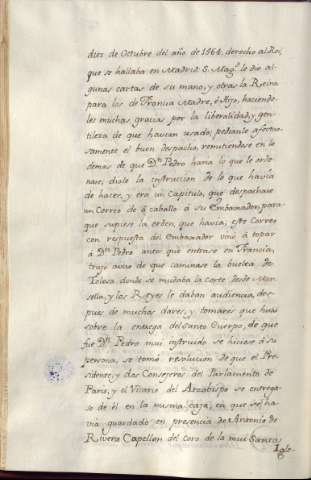 dies de Octubre del año de 1564. derecho al Rei,
que se hallaba en Madrid S. Magd. le dio al-
gunas cartas de su mano, y otras la Reina
para los de Francia Madre, é Hijo, haciendo-
les muchas gracias por la liberalidad, y gen-
tileza de que havian usado, pediante afectuo-
samente el buen despacho, remitiendose en lo
demas de que Dn. Pedro haria lo que le orde-
nase, diole la instruccion de lo que havia
de hacer, y era un Capitulo, que despachase
un Correo de á caballo á su Embaxador, para
que supiese la orden, que havia; este Correo
con respuesta del Embaxador vino á topar
á Dn. Pedro antes que entrase en Francia,
trajo aviso de que caminase la buelta de
Tolosa donde se mudaba la Corte desde Mar-
sella, y los Reyes le daban audiencia, des-
pues de muchos dares, y tomares que huvo
sobre la entrega del Santo Cuerpo, de que
fue Dn. Pedro mui instruido se hiciese á su
persona, se tomó resolucion de que el Pre-
sidente, y dos Consejeros del Parlamento de
Paris, y el Vicario del Arzobispo se entrega-
se de él en la misma caja, en que se ha-
via guardado en presencia de Antonio de
Rivera Capellan del coro de la mui Santa
Igle-